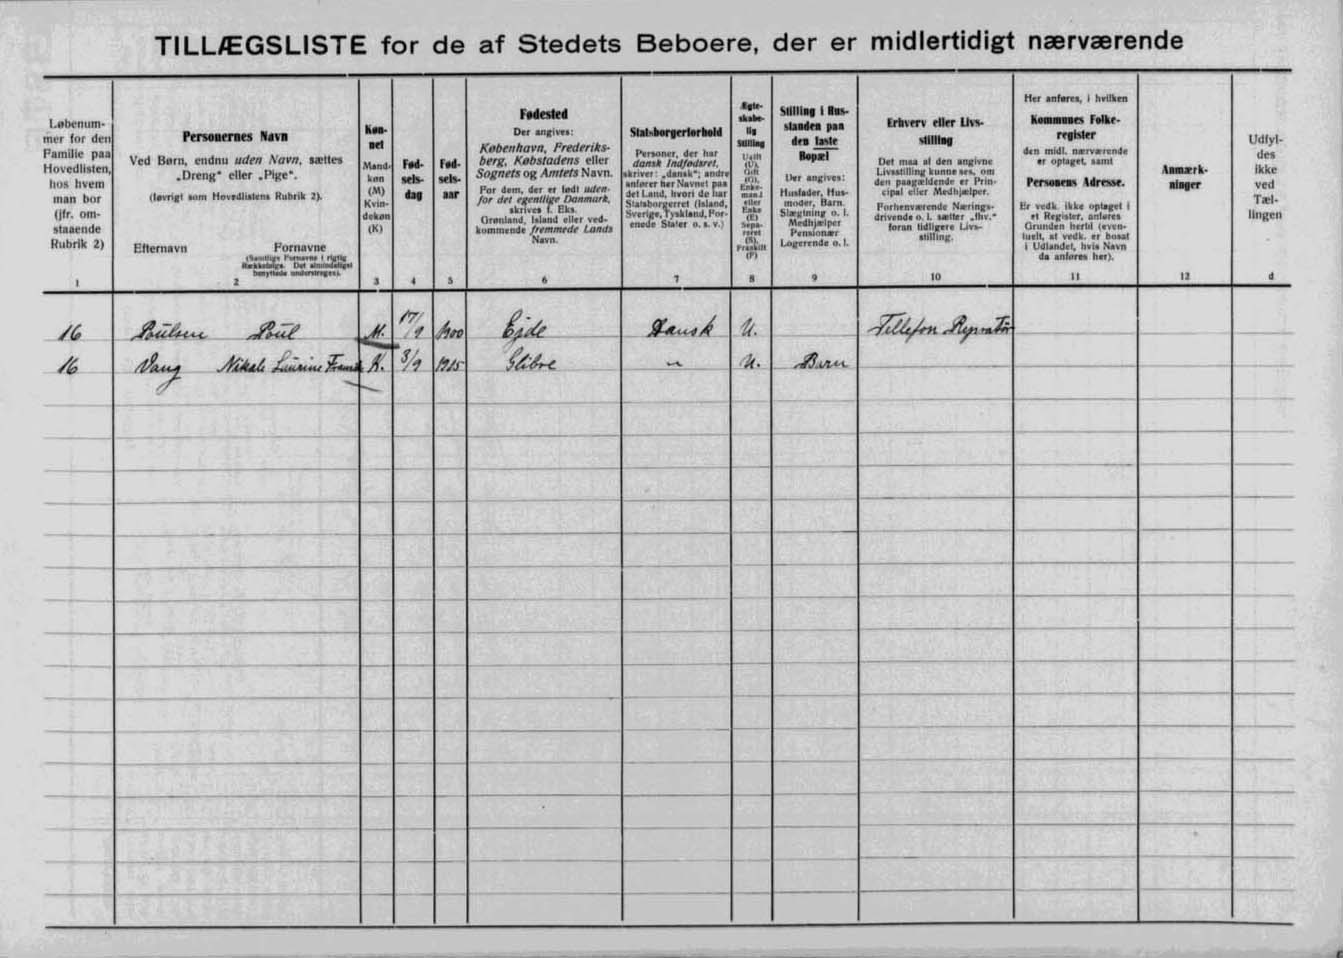 TILLÆGSLISTE for de af Stedets Beboere, der er midlertidigt nærværende
Løbenum-
mer for den
Familie paa
Hovedlisten,
hos hvem
man bor
(jfr. om-
staaende
Rubrik 2)
1
Personernes Navn
Ved Børn, endnu uden Navn, sættes
„Dreng“ eller „Pige“.
(Iøvrigt som Hovedlistens Rubrik 2).
Efternavn Fornavne
(Samtlige Fornavne i rigtig
Rækkefølge. Det almindeligst
benyttede understreges).
2
Køn-
net
Mand-
køn
(M)
Kvin-
dekøn
(K)
3
Fød-
sels-
dag
4
Fød-
sels-
aar
5
Fødested
Der angives:
København, Frederiks-
berg, Købstadens eller
Sognets og Amtets Navn.
For dem, der er født uden-
for det egentlige Danmark,
skrives f. Eks.
Grønland, Island eller ved-
kommende fremmede Lands
Navn.
6
Statsborgerforhold
Personer, der har
dansk Indfødsret,
skriver: „dansk“; andre
anfører her Navnet paa
det Land, hvori de har
Statsborgerret (Island,
Sverige, Tyskland, For-
enede Stater o. s. v.)
7
Ægte-
skabe-
lig
Stilling
Ugift
(U),
Gift
(G),
Enke-
mand
eller
Enke
(E)
Sepa-
reret
(S),
Fraskilt
(F)
8
Stilling i Hus-
standen paa
den faste
Bopæl
Der angives:
Husfader, Hus-
moder, Barn,
Slægtning o. l.
Medhjælper
Pensionær
Logerende o. l.
9
Erhverv eller Livs-
stilling
Det maa af den angivne
Livsstilling kunne ses, om
den paagældende er Prin-
cipal eller Medhjælper.
Forhenværende Nærings-
drivende o. l. sætter „fhv.“
foran tidligere Livs-
stilling.
10
Her anføres, i hvilken
Kommunes Folke-
register
den midl. nærværende
er optaget, samt
Personens Adresse.
Er vedk. ikke optaget i
et Register, anføres
Grunden hertil (even-
tuelt, at vedk. er bosat
i Udlandet, hvis Navn
da anføres her).
11
Anmærk-
ninger
12
Udfyl-
des
ikke
ved
Tæl-
lingen
d
16 Poulsen Poul M. 17/9 1900 Ejde Dansk U. Tellefon Repratør
16 Vang Nikals Laurine K. 3/9 1915 Glibre „ U. Barn